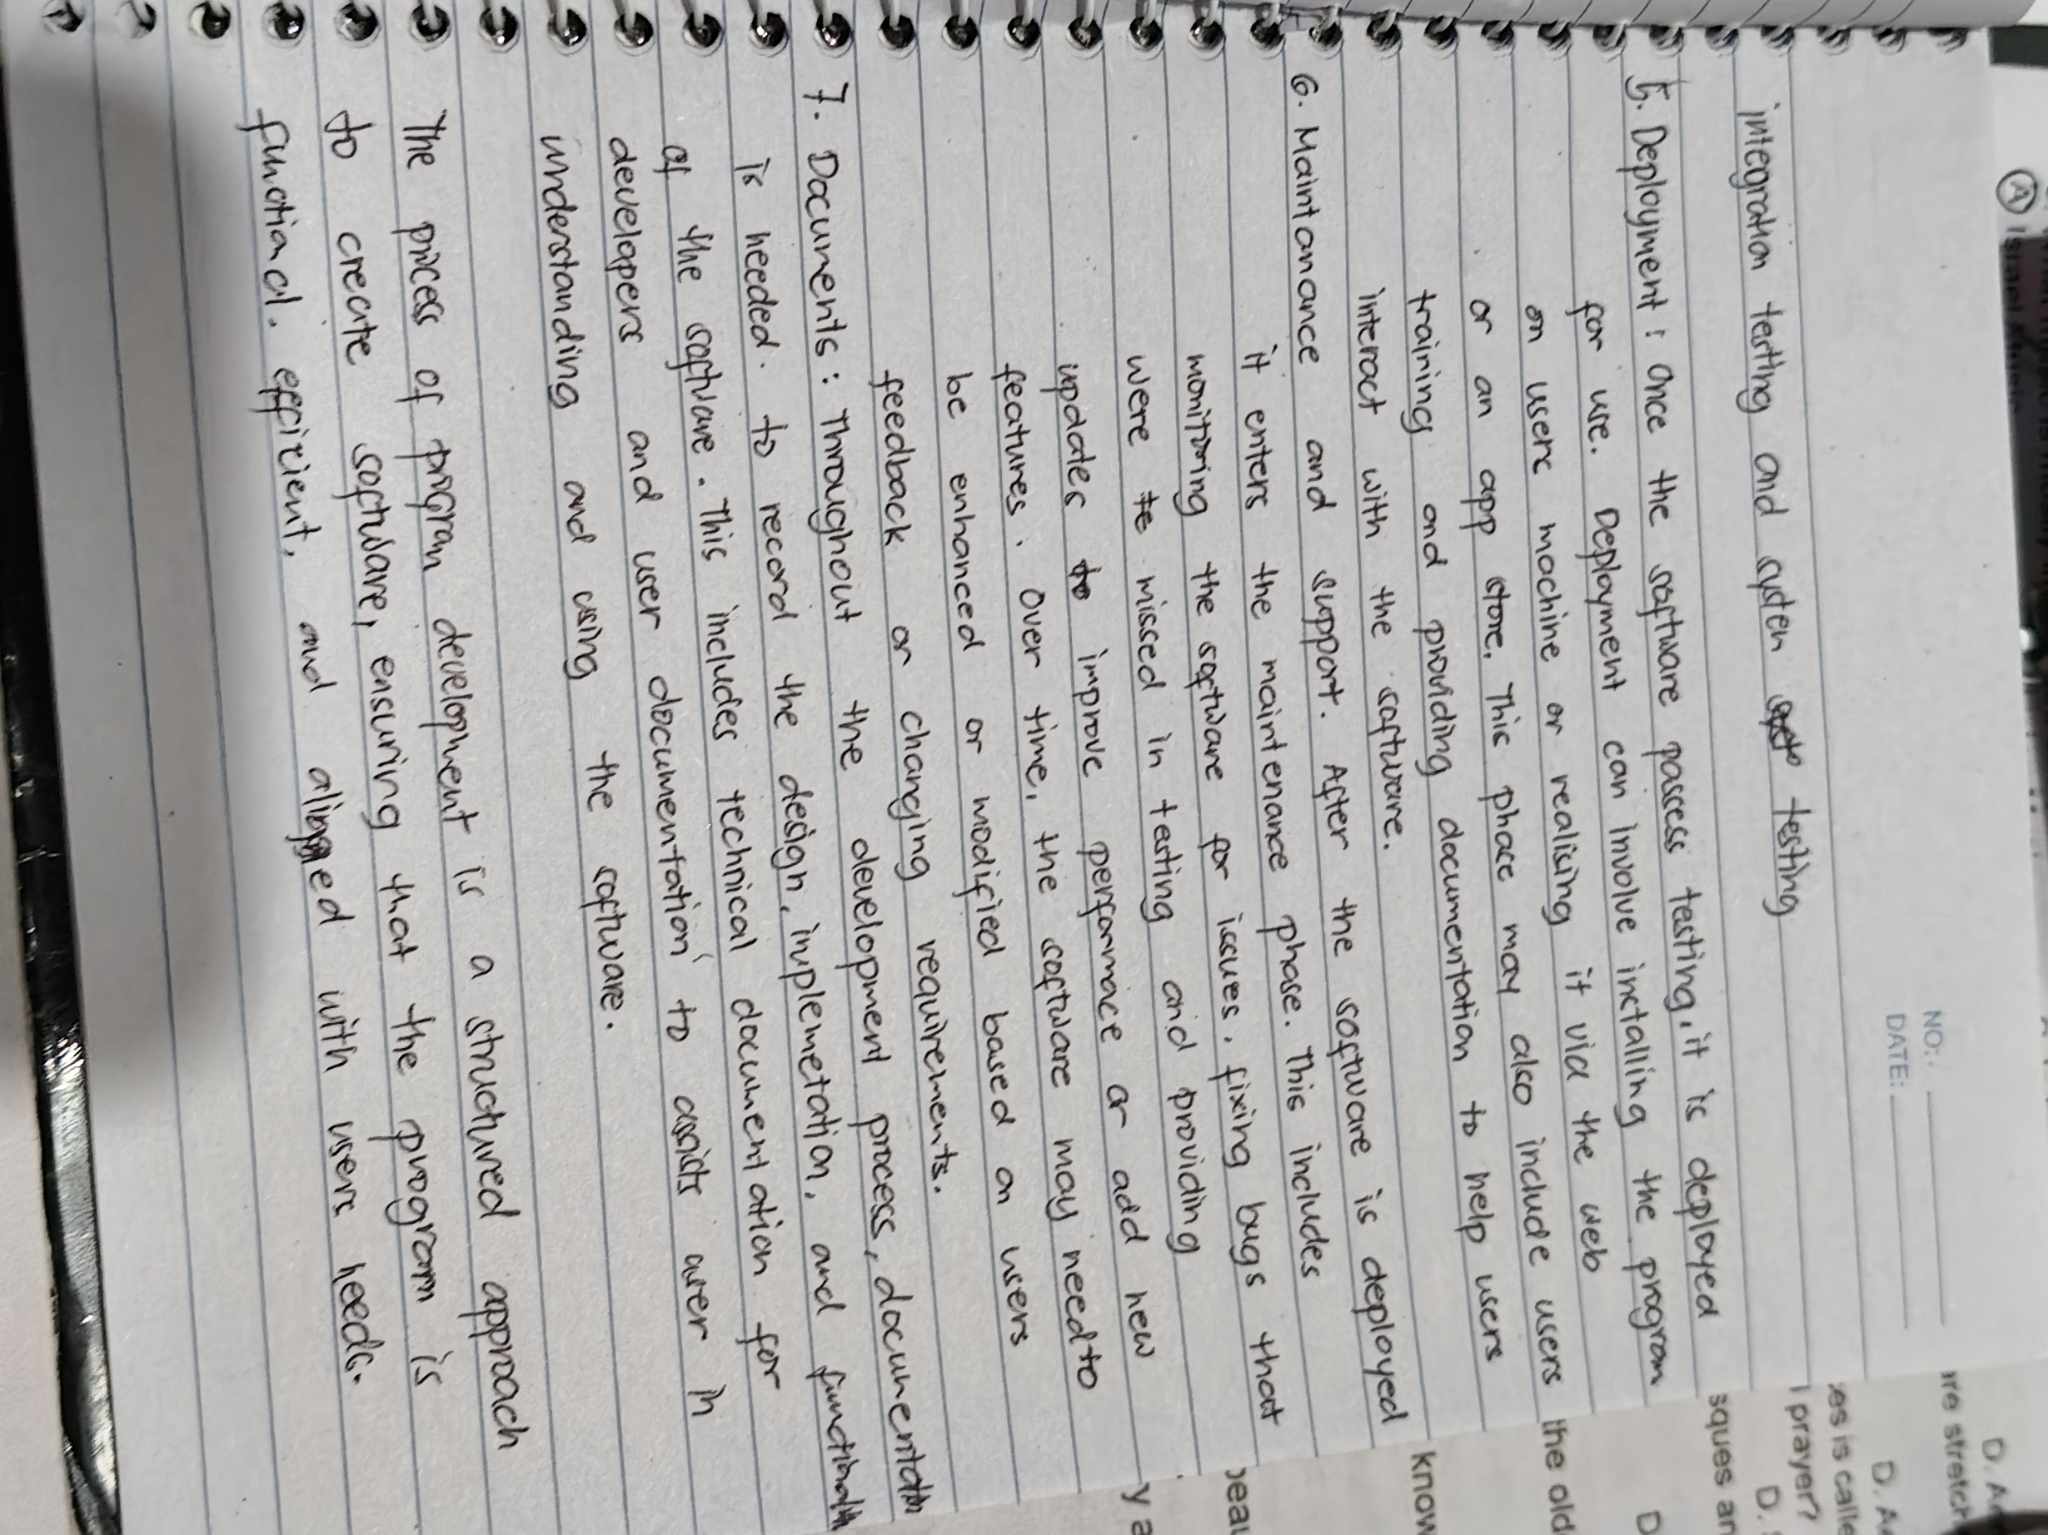 NO:.
DATE:
integration testing and system testing
5. Deployment : Once the software passess testing, it is deployed
for use. Deployment can involve installing the program
on users machine or realising it via the web
or an app store. This phase may also include users
training and providing documentation to help users
interact with the software.
6. Maintanance and support. After the software is deployed
it enters the maintenance phase. This includes
monitoring the software for issues, fixing bugs that
were missed in testing and providing
updates to improve performace or add new
features. Over time, the software may need to
be enhanced or modified based on users
feedback or changing requirements.
7. Documents : Throughout the development process, documentation
is needed. to record the design, implemetation, and functionality
of the software. This includes technical documentation for
developers and user documentation to assists user in
understanding and using the software.
The process of program development is a structured approach
to create software, ensuring that the program is
functional, efficient, and aligned with users needs.
D. A
are stretch
D. A
ses is calle
l prayer?
D.
sques an
D
the old
know
beau
y a